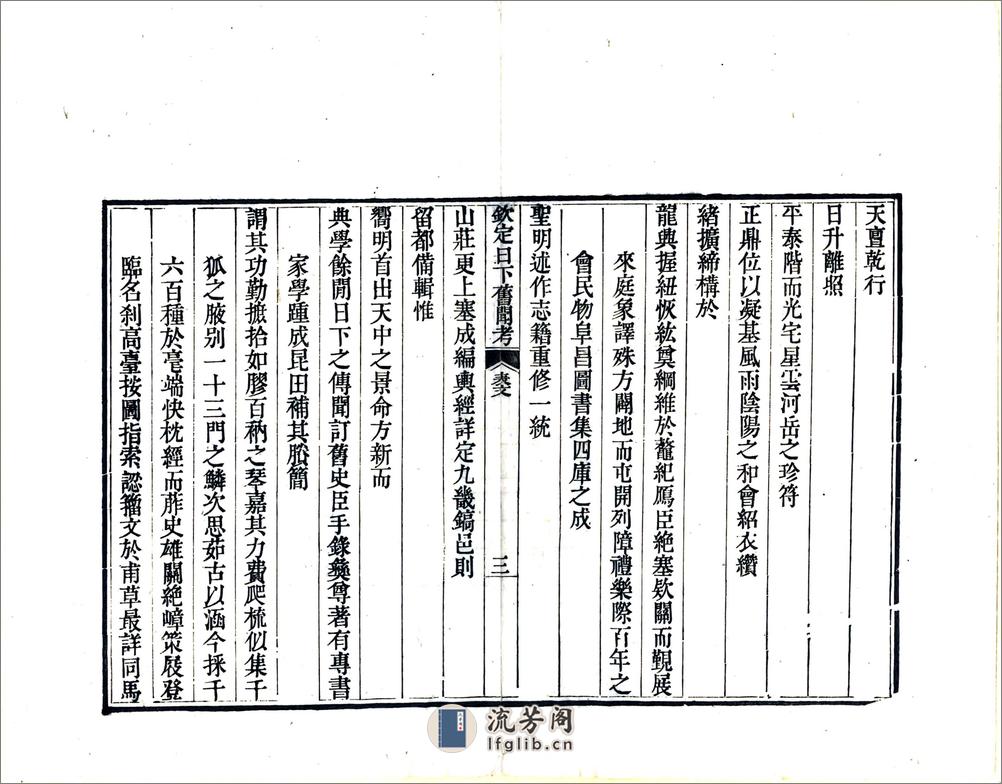 天亶乾行
日升離照
平泰階而光宅星雲河岳之珍符
正鼎位以凝基風雨陰陽之和會紹衣纘
緒擴締構於
龍興握紐恢紘奠綱維於鼇紀鴈臣絶塞欵關而覲展
來庭象譯殊方闢地而屯開列障禮樂際百年之
會民物阜昌圖書集四庫之成
聖明述作志籍重修一統
欽定日下舊聞考 表文 三
山莊更上塞成編輿經詳定九畿鎬邑則
留都備輯惟
嚮明首出天中之景命方新而
典學餘閒日下之傳聞訂舊史臣手錄彝尊著有專書
家學踵成昆田補其脫簡
謂其功勤摭拾如膠百衲之琴嘉其力費爬梳似集千
狐之腋别一十三門之鱗次思茹古以涵今採千
六百種於毫端快枕經而葄史雄關絶嶂策屐登
臨名刹高臺按圖指索認籀文於甫草最詳同馬
流芳阁
lfglib.cn